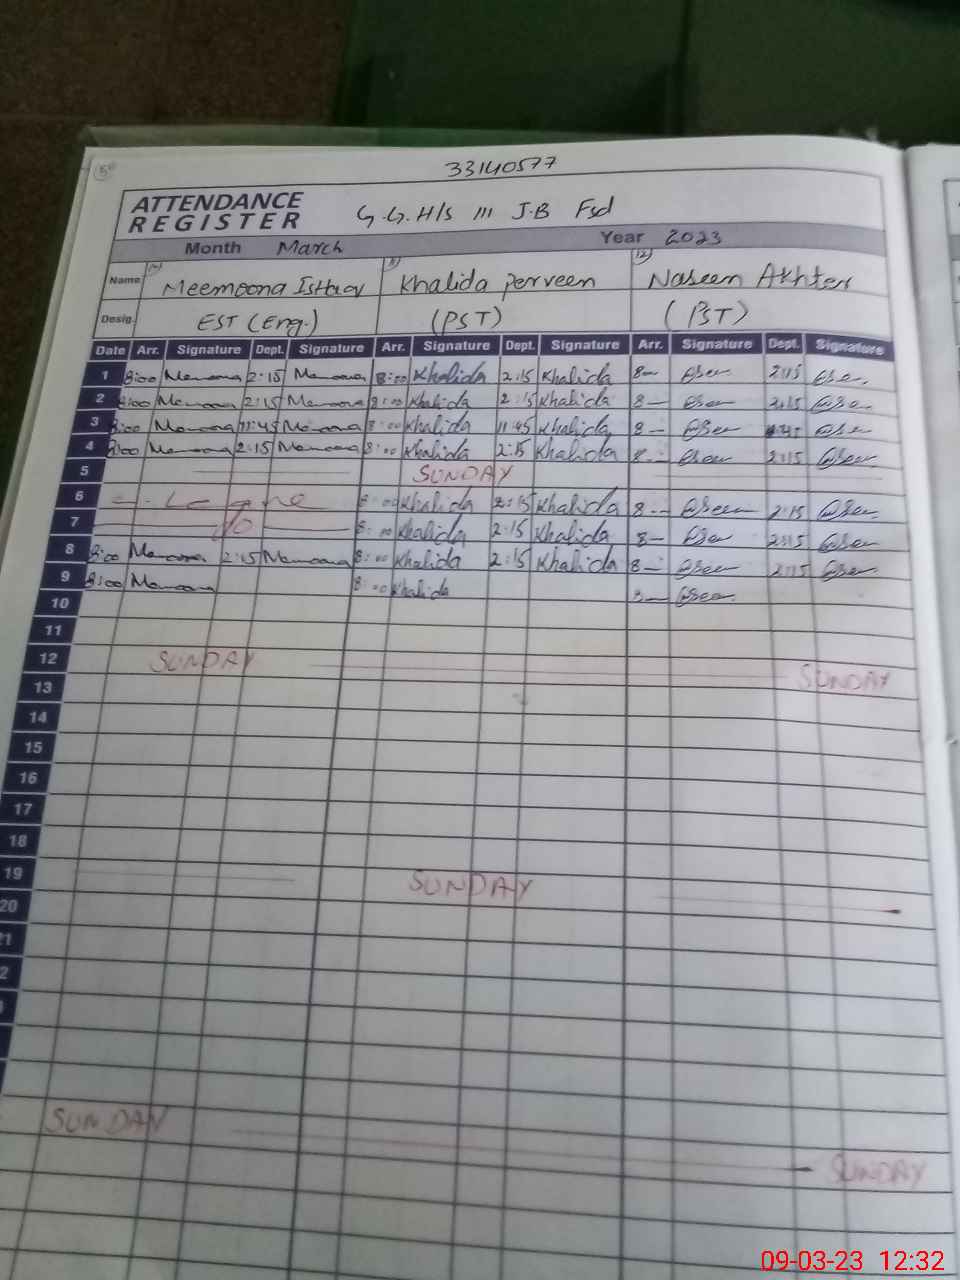 5
33140577
ATTENDANCE REGISTER G.G.H/S 111 J.B Fsd
Month March Year 2023
Name Meemoona Ishaq Khalida Perveen 12 Naseem Akhter
Desig. EST (Eng.) (PST) (PST)
Date Arr. Signature Dept. Signature Arr. Signature Dept. Signature Arr. Signature Dept. Signature
1 8:00 Memoona 2:15 Memoona 8:00 Khalida 2:15 Khalida 8— 2:15
2 8:00 Memoona 2:15 Memoona 8:00 Khalida 2:15 Khalida 8— 2:15
3 8:00 Memoona 11:45 Memoona 8:00 Khalida 11:45 Khalida 8—
4 8:00 Memoona 2:15 Memoona 8:00 Khalida 2:15 Khalida 8— 2:15
5 SUNDAY
6 Leave 8:00 Khalida 2:15 Khalida 8— 2:15
7 8:00 Khalida 2:15 Khalida 8— 2:15
8 8:00 Memoona 2:15 Memoona 8:00 Khalida 2:15 Khalida 8— 2:15
9 8:00 Memoona 8:00 Khalida 8—
10
11
12 SUNDAY SUNDAY
13
14
15
16
17
18
19 SUNDAY
20
21
2
SUNDAY SUNDAY
09-03-23 12:32